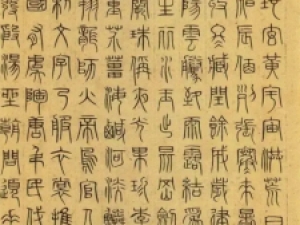 地玄黃宇宙洪荒日
昃辰宿列張寒來暑
收冬藏閏餘成歲律
陽雲騰致雨露結為
生麗水玉出崑岡劍
闕珠稱夜光果珍李
重芥薑海鹹河淡鱗
翔龍師火帝鳥官人
制文字乃服衣裳推
國有虞陶唐弔民伐
發殷湯坐朝問道垂